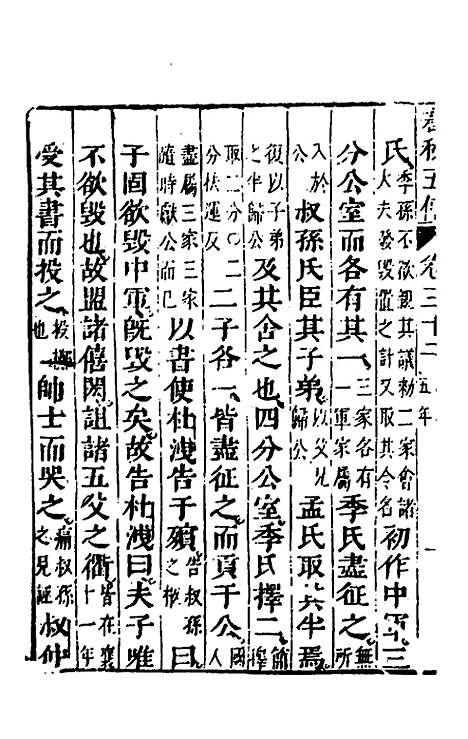 春秋五傳 卷三十二 五年 一
氏季孫不欲親其議勑二家會諸大夫發毀置之計又取其令名初作中軍三
分公室而各有其一三家各有一軍家屬季氏盡征之無所
入於公叔孫氏臣其子弟以父兄歸公孟氏取其半焉
復以子弟之半歸公及其舍之也四分公室季氏擇二簡擇
取二分○二分扶運反二子各一皆盡征之而貢于公國人
盡屬三家三家隨時獻公而已以書使杜洩告于殯告叔孫之柩曰
子固欲毀中軍既毀之矣故告杜洩曰夫子唯
不欲毀也故盟諸僖閎詛諸五父之衢皆在襄十一年
受其書而投之投擲也帥士而哭之痛叔孫之見誣叔仲